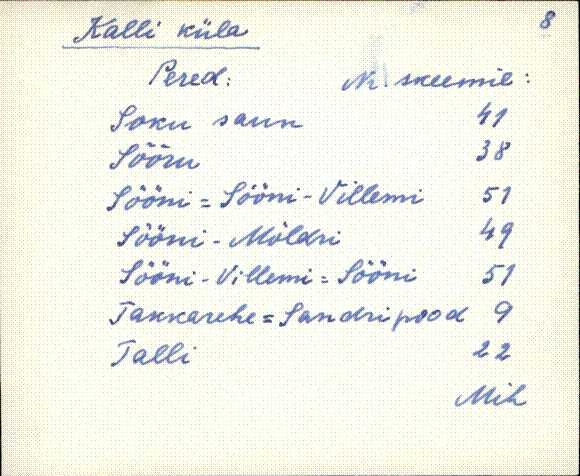 8
Kalli küla
Pered: Nr. skeemil:
Soku saun 41
Sööru 38
Sööni = Sööni-Villemi 51
Sööni - Möldri 49
Sööni-Villemi = Sööni 51
Takkarehe = Sandripood 9
Talli 22